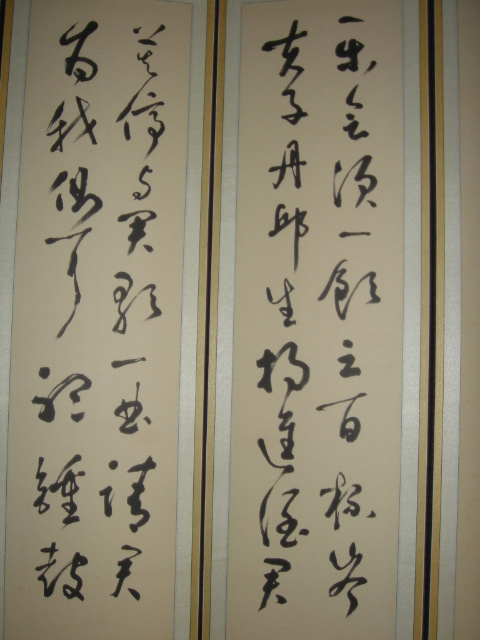 樂會須一飲三百杯岑
夫子丹邱生將進酒君
莫停與君歌一曲請君
為我側耳聽鍾鼓